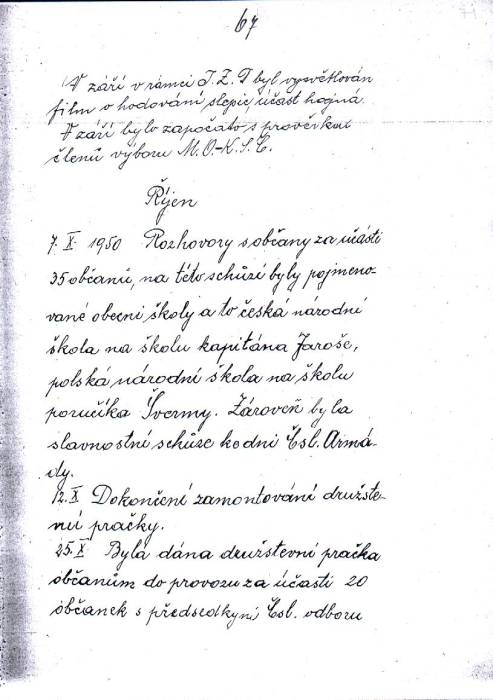 67
V září v rámci J.Z.D byl vysvětlován
film o hodování slepic, účast hojná.
V září bylo započato s prověrkou
členů výboru M.O-K.S.Č.
Říjen
7. X. 1950 Rozhovory s občany za účasti
35 občanů, na této schůzi byly pojmeno-
vané obecní školy a to česká národní
škola na školu kapitána Jaroše,
polská národní škola na školu
poručíka Švermy. Zároveň byla
slavnostní schůze ke dni Čsl. Armá-
dy.
12. X Dokončení zamontování družste-
vní pračky.
25. X Byla dána družstevní pračka
občanům do provozu za účasti 20
občanek s předsedkyní Čsl. odboru